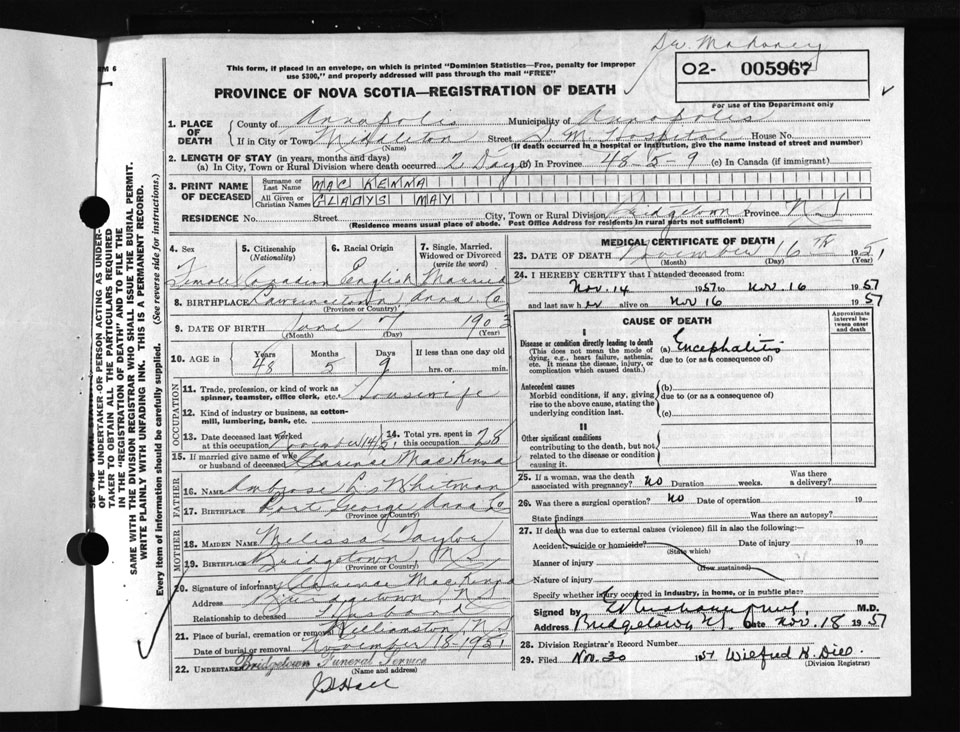 Dr. Mahoney
This form, if placed in an envelope, on which is printed "Dominion Statistics—Free, penalty for improper
use $300," and properly addressed will pass through the mail "FREE"
02- 005967
For use of the Department only
PROVINCE OF NOVA SCOTIA—REGISTRATION OF DEATH
1. PLACE OF DEATH
County of Annapolis Municipality of Annapolis
If in City or Town Middleton Street S. M. Hospital House No.
(Name) (If death occurred in a hospital or institution, give the name instead of street and number)
2. LENGTH OF STAY (in years, months and days)
(a) In City, Town or Rural Division where death occurred 2 Days (b) In Province 48-5-9 (c) In Canada (if immigrant)
3. PRINT NAME OF DECEASED
Surname or Last Name MAC KENNA
All Given or Christian Names GLADYS MAY
RESIDENCE No. Street City, Town or Rural Division Bridgetown Province N S
(Residence means usual place of abode. Post Office Address for residents in rural parts not sufficient)
4. Sex 5. Citizenship (Nationality) 6. Racial Origin 7. Single, Married, Widowed or Divorced (write the word)
Female Canadian English Married
8. BIRTHPLACE Lawrencetown Anna Co
(Province or Country)
9. DATE OF BIRTH June 7 1903
(Month) (Day) (Year)
10. AGE in Years Months Days If less than one day old
48 5 9 hrs. or min.
OCCUPATION
11. Trade, profession, or kind of work as
spinner, teamster, office clerk, etc. Housewife
12. Kind of industry or business, as cotton-
mill, lumbering, bank, etc.
13. Date deceased last worked
at this occupation November 14/51 14. Total yrs. spent in this occupation 28
15. If married give name of wife
or husband of deceased Clarence MacKenna
FATHER
16. NAME Ambrose L. Whitman
17. BIRTHPLACE Port George Anna Co
(Province or Country)
MOTHER
18. MAIDEN NAME Melissa Taylor
19. BIRTHPLACE Bridgetown, N S
(Province or Country)
20. Signature of informant Clarence MacKenna
Address Bridgetown, N S
Relationship to deceased Husband
21. Place of burial, cremation or removal Williamston, N S
Date of burial or removal November 18-1951
22. UNDERTAKER Bridgetown Funeral Service
(Name and address)
MEDICAL CERTIFICATE OF DEATH
23. DATE OF DEATH November 16TH 1951
(Month) (Day) (Year)
24. I HEREBY CERTIFY that I attended deceased from:
Nov. 14 1951 to Nov. 16 1951
and last saw her alive on Nov 16 1951
CAUSE OF DEATH
Approximate interval between onset and death
I
Disease or condition directly leading to death
(This does not mean the mode of
dying, e.g., heart failure, asthenia,
etc. It means the disease, injury, or
complication which caused death.)
(a) Encephalitis
due to (or as a consequence of)
Antecedent causes
Morbid conditions, if any, giving
rise to the above cause, stating the
underlying condition last.
(b)
due to (or as a consequence of)
(c)
II
Other significant conditions
contributing to the death, but not
related to the disease or condition
causing it.
25. If a woman, was the death
associated with pregnancy? No Duration weeks. Was there a delivery?
26. Was there a surgical operation? No Date of operation 19
State findings Was there an autopsy?
27. If death was due to external causes (violence) fill in also the following:-
Accident, suicide or homicide? Date of injury 19
(State which)
Manner of injury
(How sustained)
Nature of injury
Specify whether injury occurred in industry, in home, or in public place
Signed by M.D.
Address Bridgetown, N.S. Date Nov. 18 1951
28. Division Registrar's Record Number
29. Filed Nov. 30 1951 Wilfred H. Dill
(Division Registrar)
OF THE UNDERTAKER OR PERSON ACTING AS UNDER-
TAKER TO OBTAIN ALL THE PARTICULARS REQUIRED
IN THE "REGISTRATION OF DEATH" AND TO FILE THE
SAME WITH THE DIVISION REGISTRAR WHO SHALL ISSUE THE BURIAL PERMIT.
WRITE PLAINLY WITH UNFADING INK. THIS IS A PERMANENT RECORD.
Every item of information should be carefully supplied. (See reverse side for instructions.)